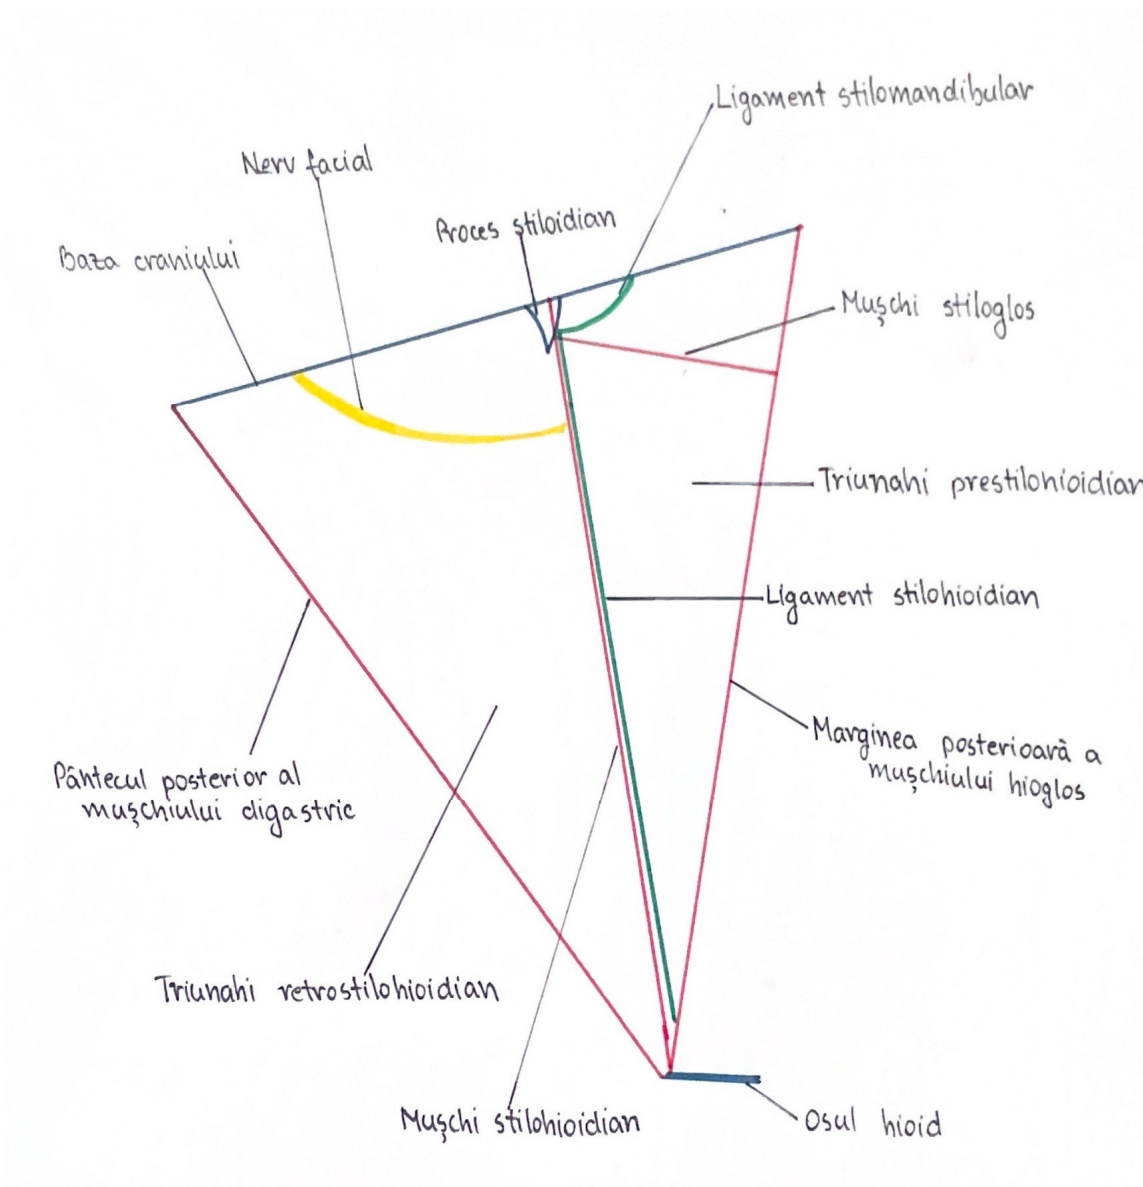 Ligament stilomandibular
Nerv facial
Proces stiloidian
Baza craniului
Mușchi stiloglos
Triunahi prestilohioidian
Ligament stilohioidian
Marginea posterioară a
mușchiului hioglos
Pântecul posterior al
mușchiului digastric
Triunahi retrostilohioidian
Mușchi stilohioidian
Osul hioid